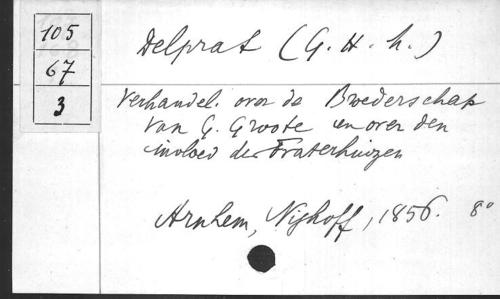 105
67
3
Delprat (G. H. h.)
Verhandel. over de Broederschap
van G. Groote en over den
invloed der Fraterhuizen
Arnhem, Nijhoff, 1856. 8°